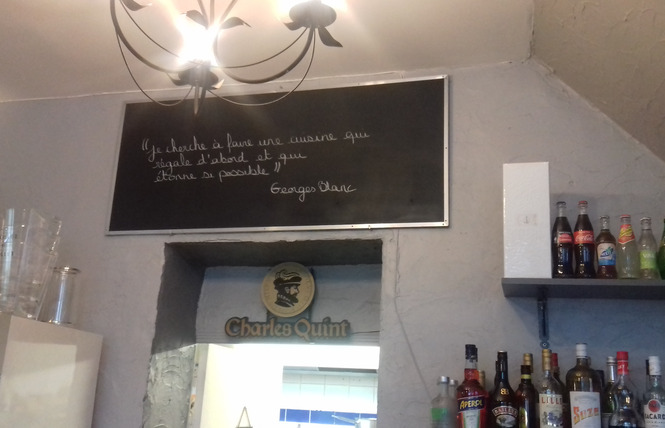 "Je cherche à faire une cuisine qui
régale d'abord et qui
étonne si possible"
Georges Blanc
Charles Quint
APEROL
LILLET
SUZE
BACARDI